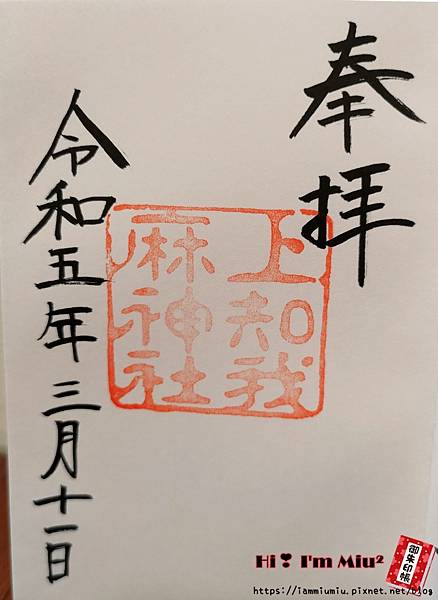 奉拝
上知我
麻神社
令和五年三月十一日
Hi❣ I'm Miu²
御朱印帳
https://iammiumiu.pixnet.net/blog